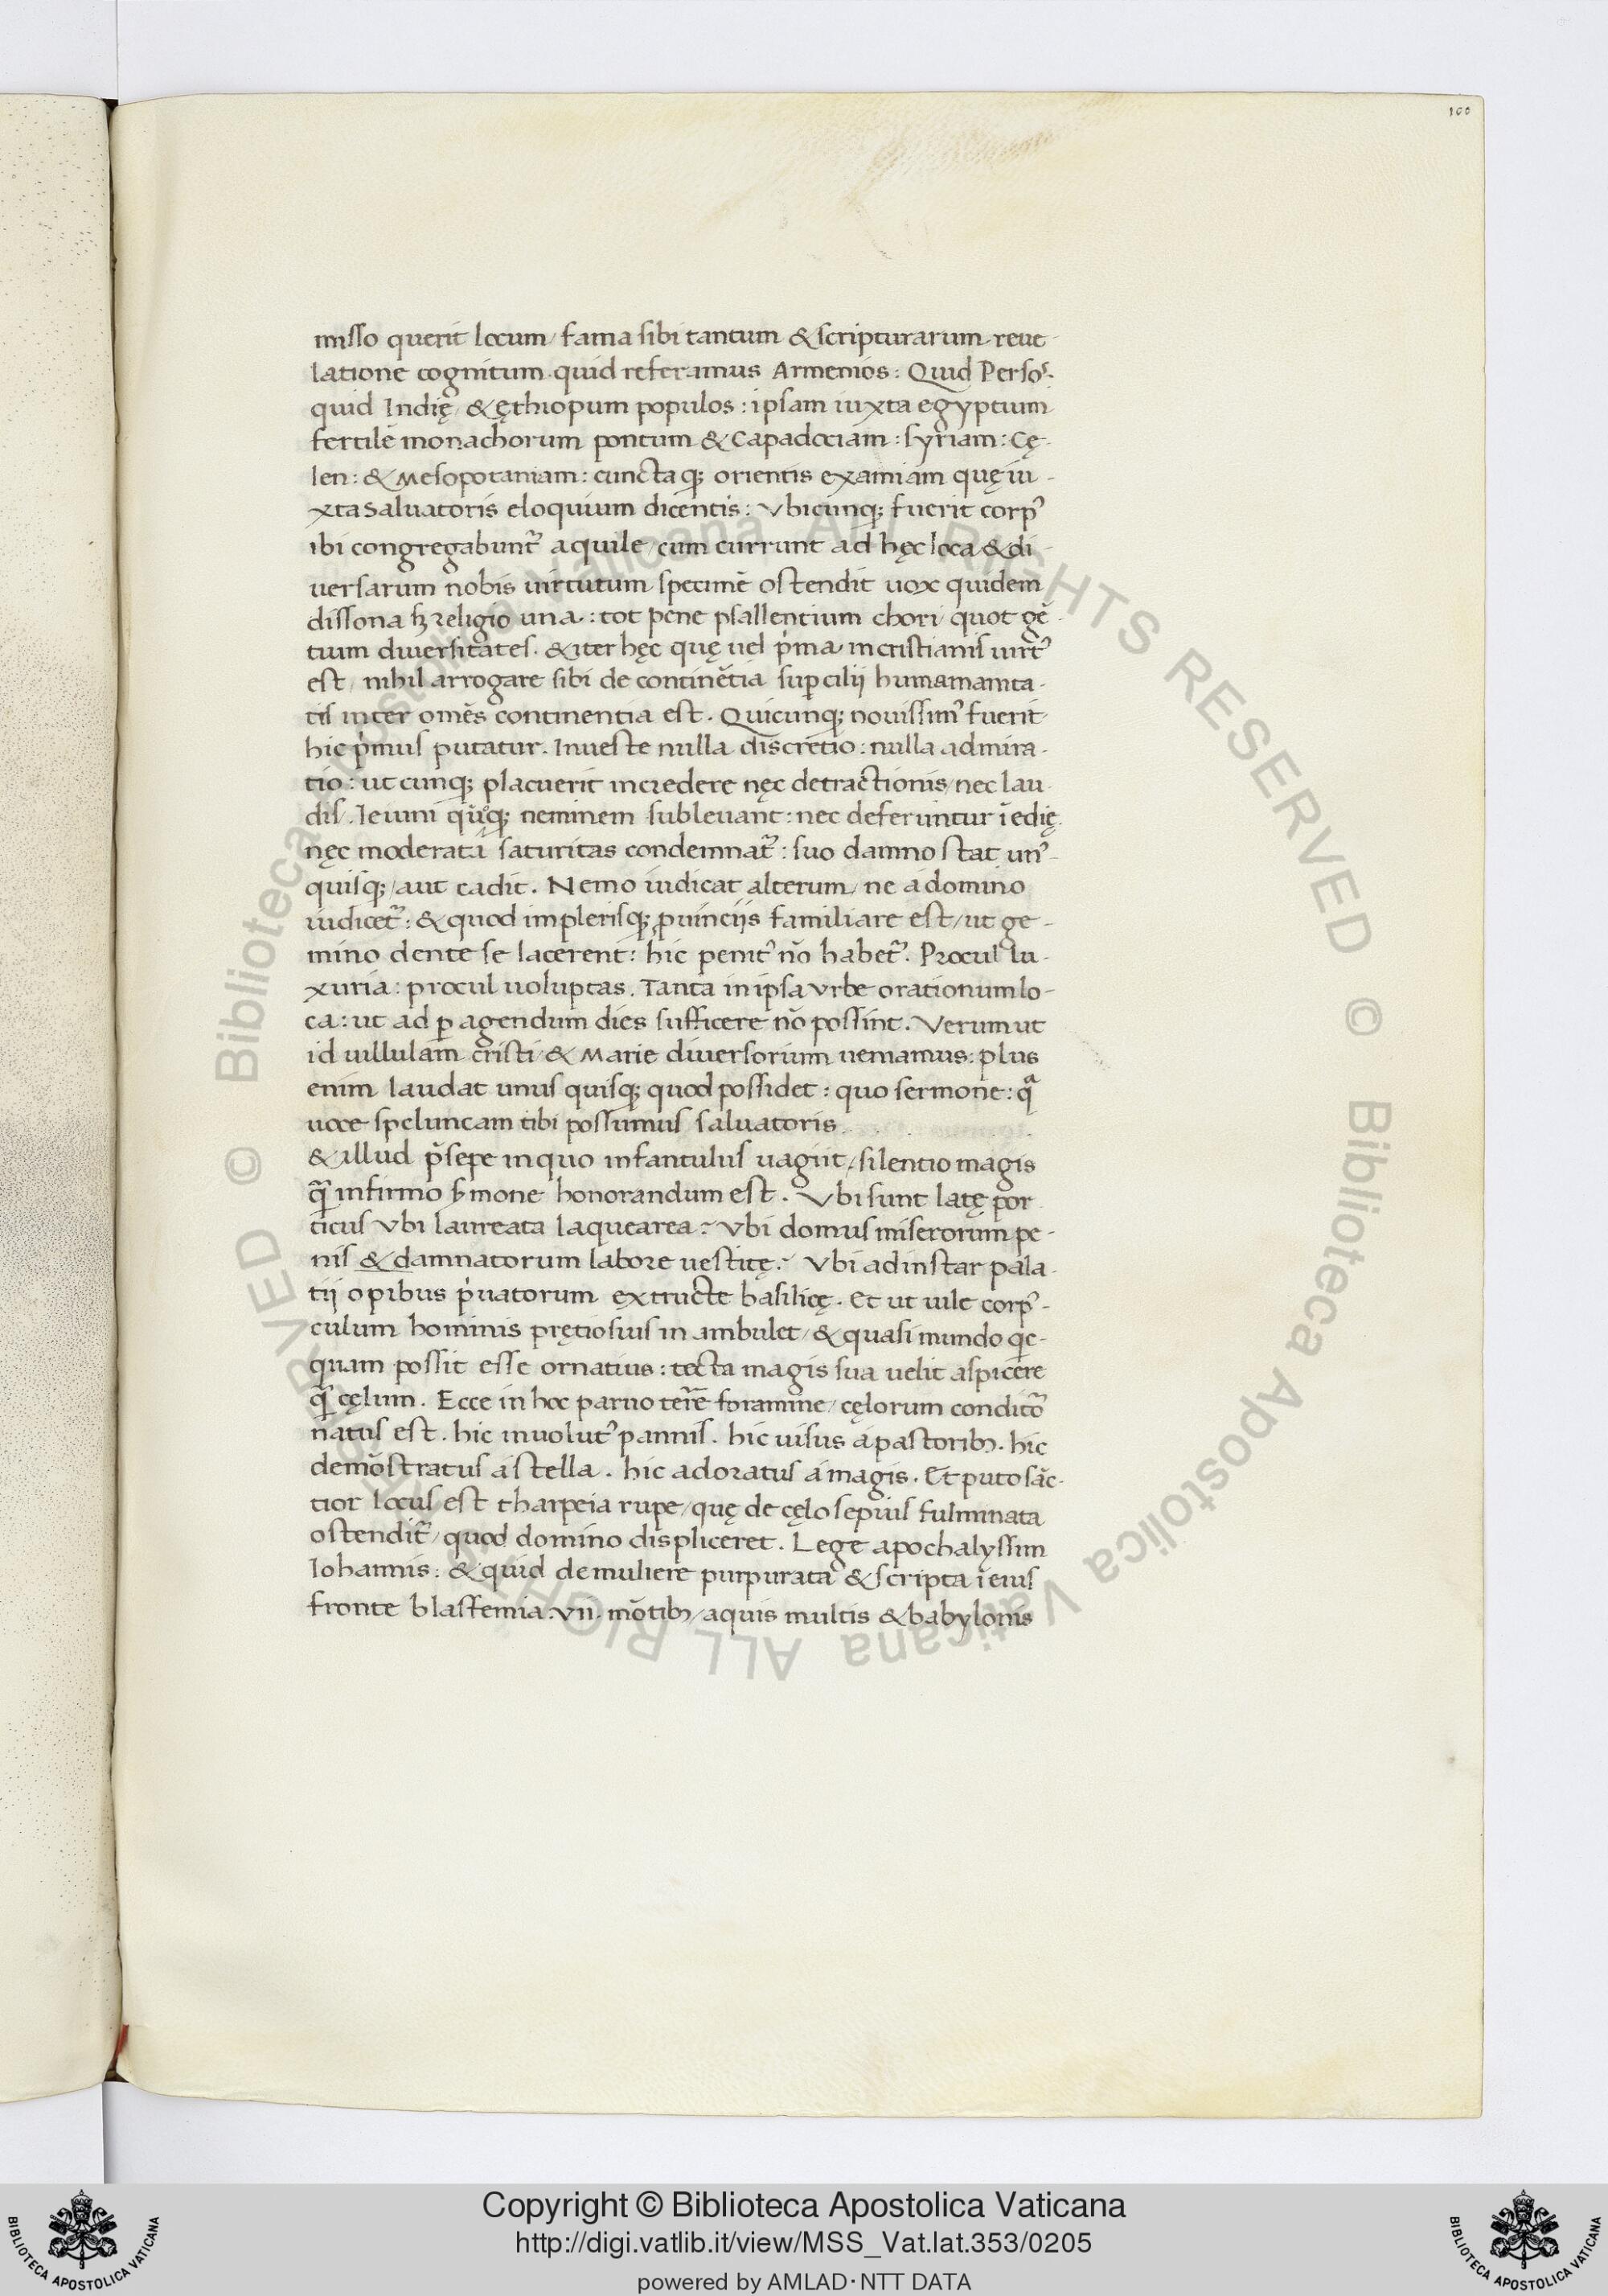 100
misso querit locum / fama sibi tantum & scripturarum reue-
latione cognitum. quid referamus Armenios: Quid Persos.
quid Indię / & ęthiopum populos: ipsam iuxta egyptum
fertilē monachorum pontum & Capadociam: syriam: Cę-
len: & Mesopotaniam: cunctaq; orientis examiam quę iu-
xta Saluatoris eloquium dicentis: Vbicunq; fuerit corpꝰ
ibi congregabunt᷑ aquile / cum currunt ad hęc loca / & di-
uersarum nobis uirtutum specimē ostendit uox quidem
dissona sꝫ religio una: tot pene psallentium chori / quot gē-
tium diuersitates. & iter hęc quę uel p̍ma in cristianis uirt᷑
est / nihil arrogare sibi de continētia suꝑcilii humamanita-
tis inter omēs continentia est. Quicunq; nouissimꝰ fuerit
hic p̍mus putatur. Inueste nulla discretio: nulla admira-
tio: ut cunq; placuerit incedere nęc detractionis / nec lau-
dis. Ieiuni qūoq; neminem subleuant: nec deferuntur īedię
nęc moderata saturitas condemnat᷑: suo damno stat unꝰ-
quisq; / aut cadit. Nemo iudicat alterum / ne a domino
iudicet᷑: & quod implerisq; ꝓuinciis familiare est / ut ge-
mino dente se lacerent: hic penitꝰ nō habet᷑. Procul lu-
xuria: procul uoluptas. Tanta in ipsa Vrbe orationum lo-
ca: ut ad ꝑagendum dies sufficere nō possint. Verum ut
id uillulam cristi & Marie diuersorium ueniamus: plus
enim laudat unus quisq; quod possidet: quo sermone: qᷓ
uoce speluncam tibi possumus saluatoris
& illud p̄sepe in quo infantulus uagiit / silentio magis
qᷓ infirmo ẜmone honorandum est. Vbi sunt latę por
ticus Vbi laureata laquearea? Vbi domus miserorum pe-
nis & damnatorum labore uestitę. Vbi ad instar pala-
tii opibus p̍uatorum ęxtructe basilicę. Et ut uile corpꝰ-
culum hominis prętiosius in ambulet / & quasi mundo qc-
quam possit esse ornatius: tecta magis sua uelit aspicere
qᷓ cęlum. Ecce in hoc paruo terrē foramine / cęlorum conditō
natus est. hic inuolutꝰ pannis. hic uisus a pastoribꝫ. hic
demōstratus a stella. hic adoratus a magis. Et puto sāc-
tior locus est tharpeia rupe / quę de cęlo sepius fulminata
ostendit᷑ / quod domino displiceret. Lege apochalyssim
Iohannis: & quid de muliere purpurata & scripta ī eius
fronte blasfemia. VII. mōtibꝫ / aquis multis & babylonis
© Biblioteca Apostolica Vaticana ALL RIGHTS RESERVED
© Biblioteca Apostolica Vaticana ALL RIGHTS RESERVED
Copyright © Biblioteca Apostolica Vaticana
http://digi.vatlib.it/view/MSS_Vat.lat.353/0205
powered by AMLAD·NTT DATA
BIBLIOTECA APOSTOLICA VATICANA
BIBLIOTECA APOSTOLICA VATICANA